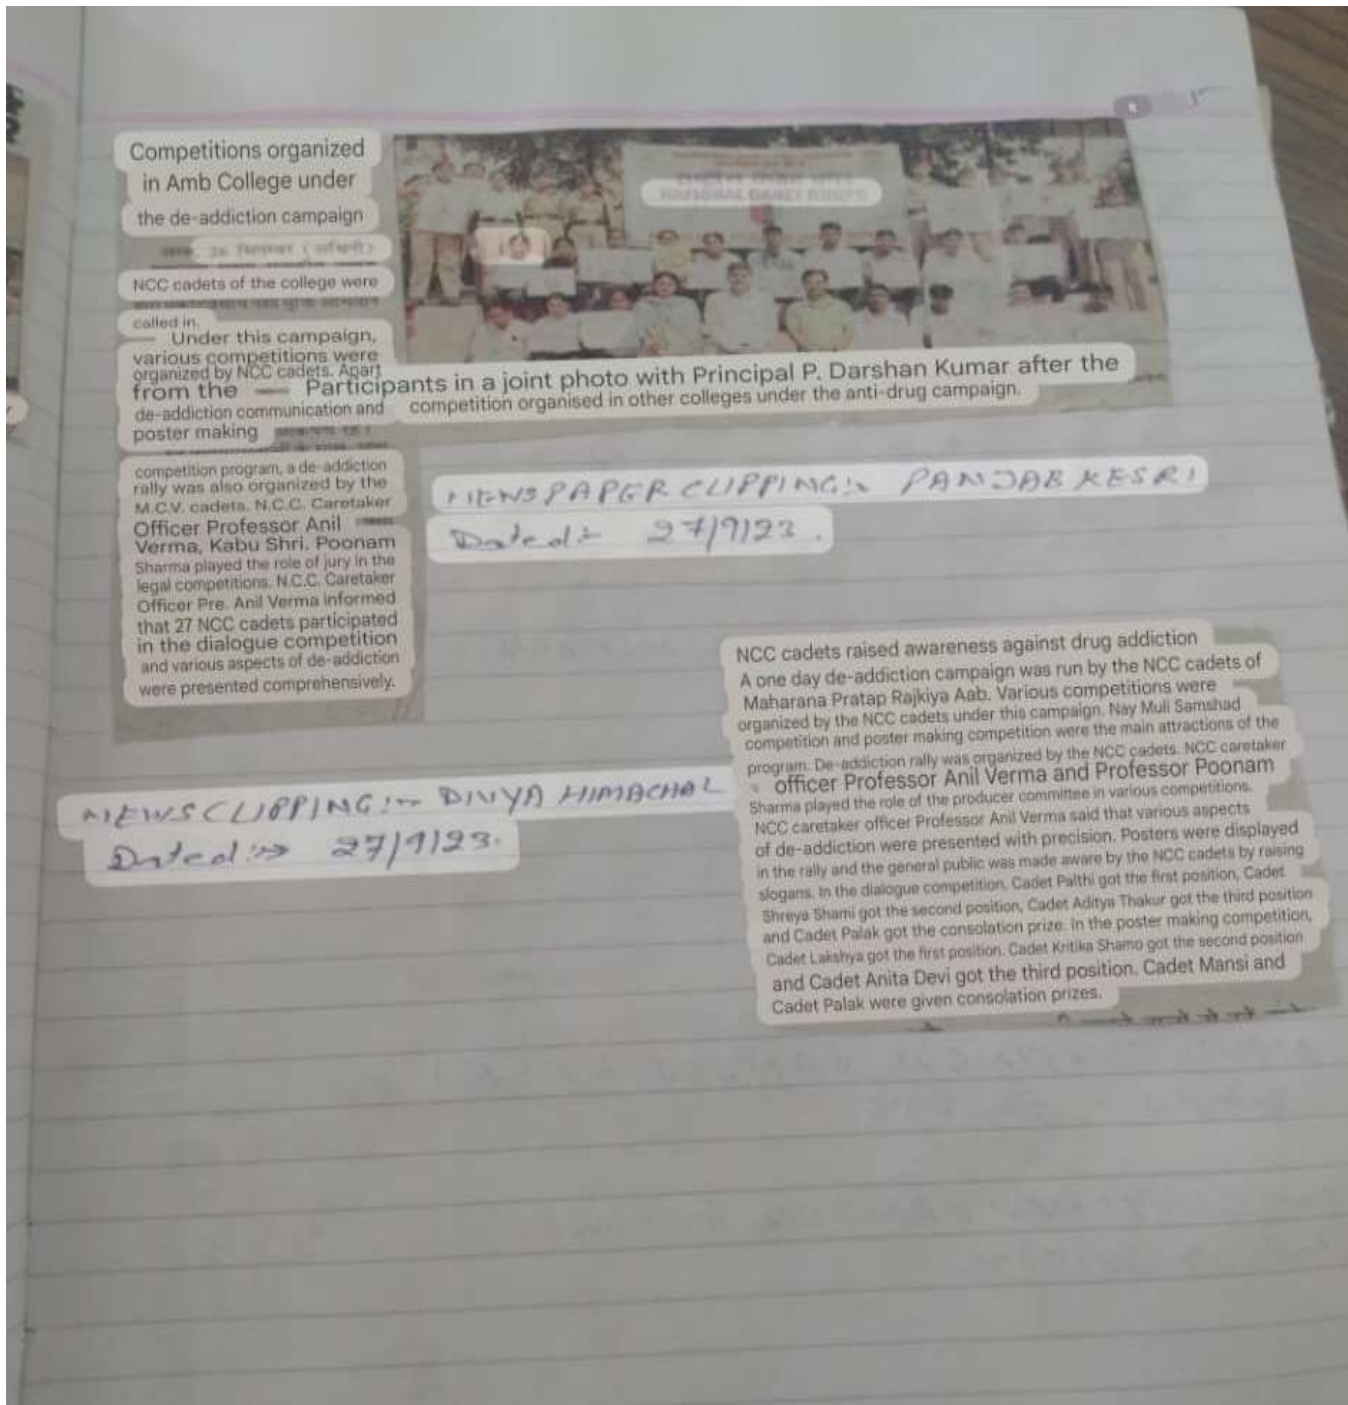 Competitions organized
in Amb College under
the de-addiction campaign
NCC cadets of the college were
called in.
Under this campaign,
various competitions were
organized by NCC cadets. Apart
from the
de-addiction communication and
poster making
competition program, a de-addiction
rally was also organized by the
M.C.V. cadets. N.C.C. Caretaker
Officer Professor Anil
Verma, Kabu Shri. Poonam
Sharma played the role of jury in the
legal competitions. N.C.C. Caretaker
Officer Pre. Anil Verma informed
that 27 NCC cadets participated
in the dialogue competition
and various aspects of de-addiction
were presented comprehensively.
Participants in a joint photo with Principal P. Darshan Kumar after the
competition organised in other colleges under the anti-drug campaign.
NEWSPAPER CLIPPING:- PANJAB KESRI
Dated:- 27/9/23.
NEWS CLIPPING:- DIVYA HIMACHAL
Dated:- 27/9/23.
NCC cadets raised awareness against drug addiction
A one day de-addiction campaign was run by the NCC cadets of
Maharana Pratap Rajkiya Aab. Various competitions were
organized by the NCC cadets under this campaign. Nay Muli Samshad
competition and poster making competition were the main attractions of the
program. De-addiction rally was organized by the NCC cadets. NCC caretaker
officer Professor Anil Verma and Professor Poonam
Sharma played the role of the producer committee in various competitions.
NCC caretaker officer Professor Anil Verma said that various aspects
of de-addiction were presented with precision. Posters were displayed
in the rally and the general public was made aware by the NCC cadets by raising
slogans. In the dialogue competition, Cadet Palthi got the first position, Cadet
Shreya Shami got the second position, Cadet Aditya Thakur got the third position
and Cadet Palak got the consolation prize. In the poster making competition,
Cadet Lakshya got the first position. Cadet Kritika Shamo got the second position
and Cadet Anita Devi got the third position. Cadet Mansi and
Cadet Palak were given consolation prizes.